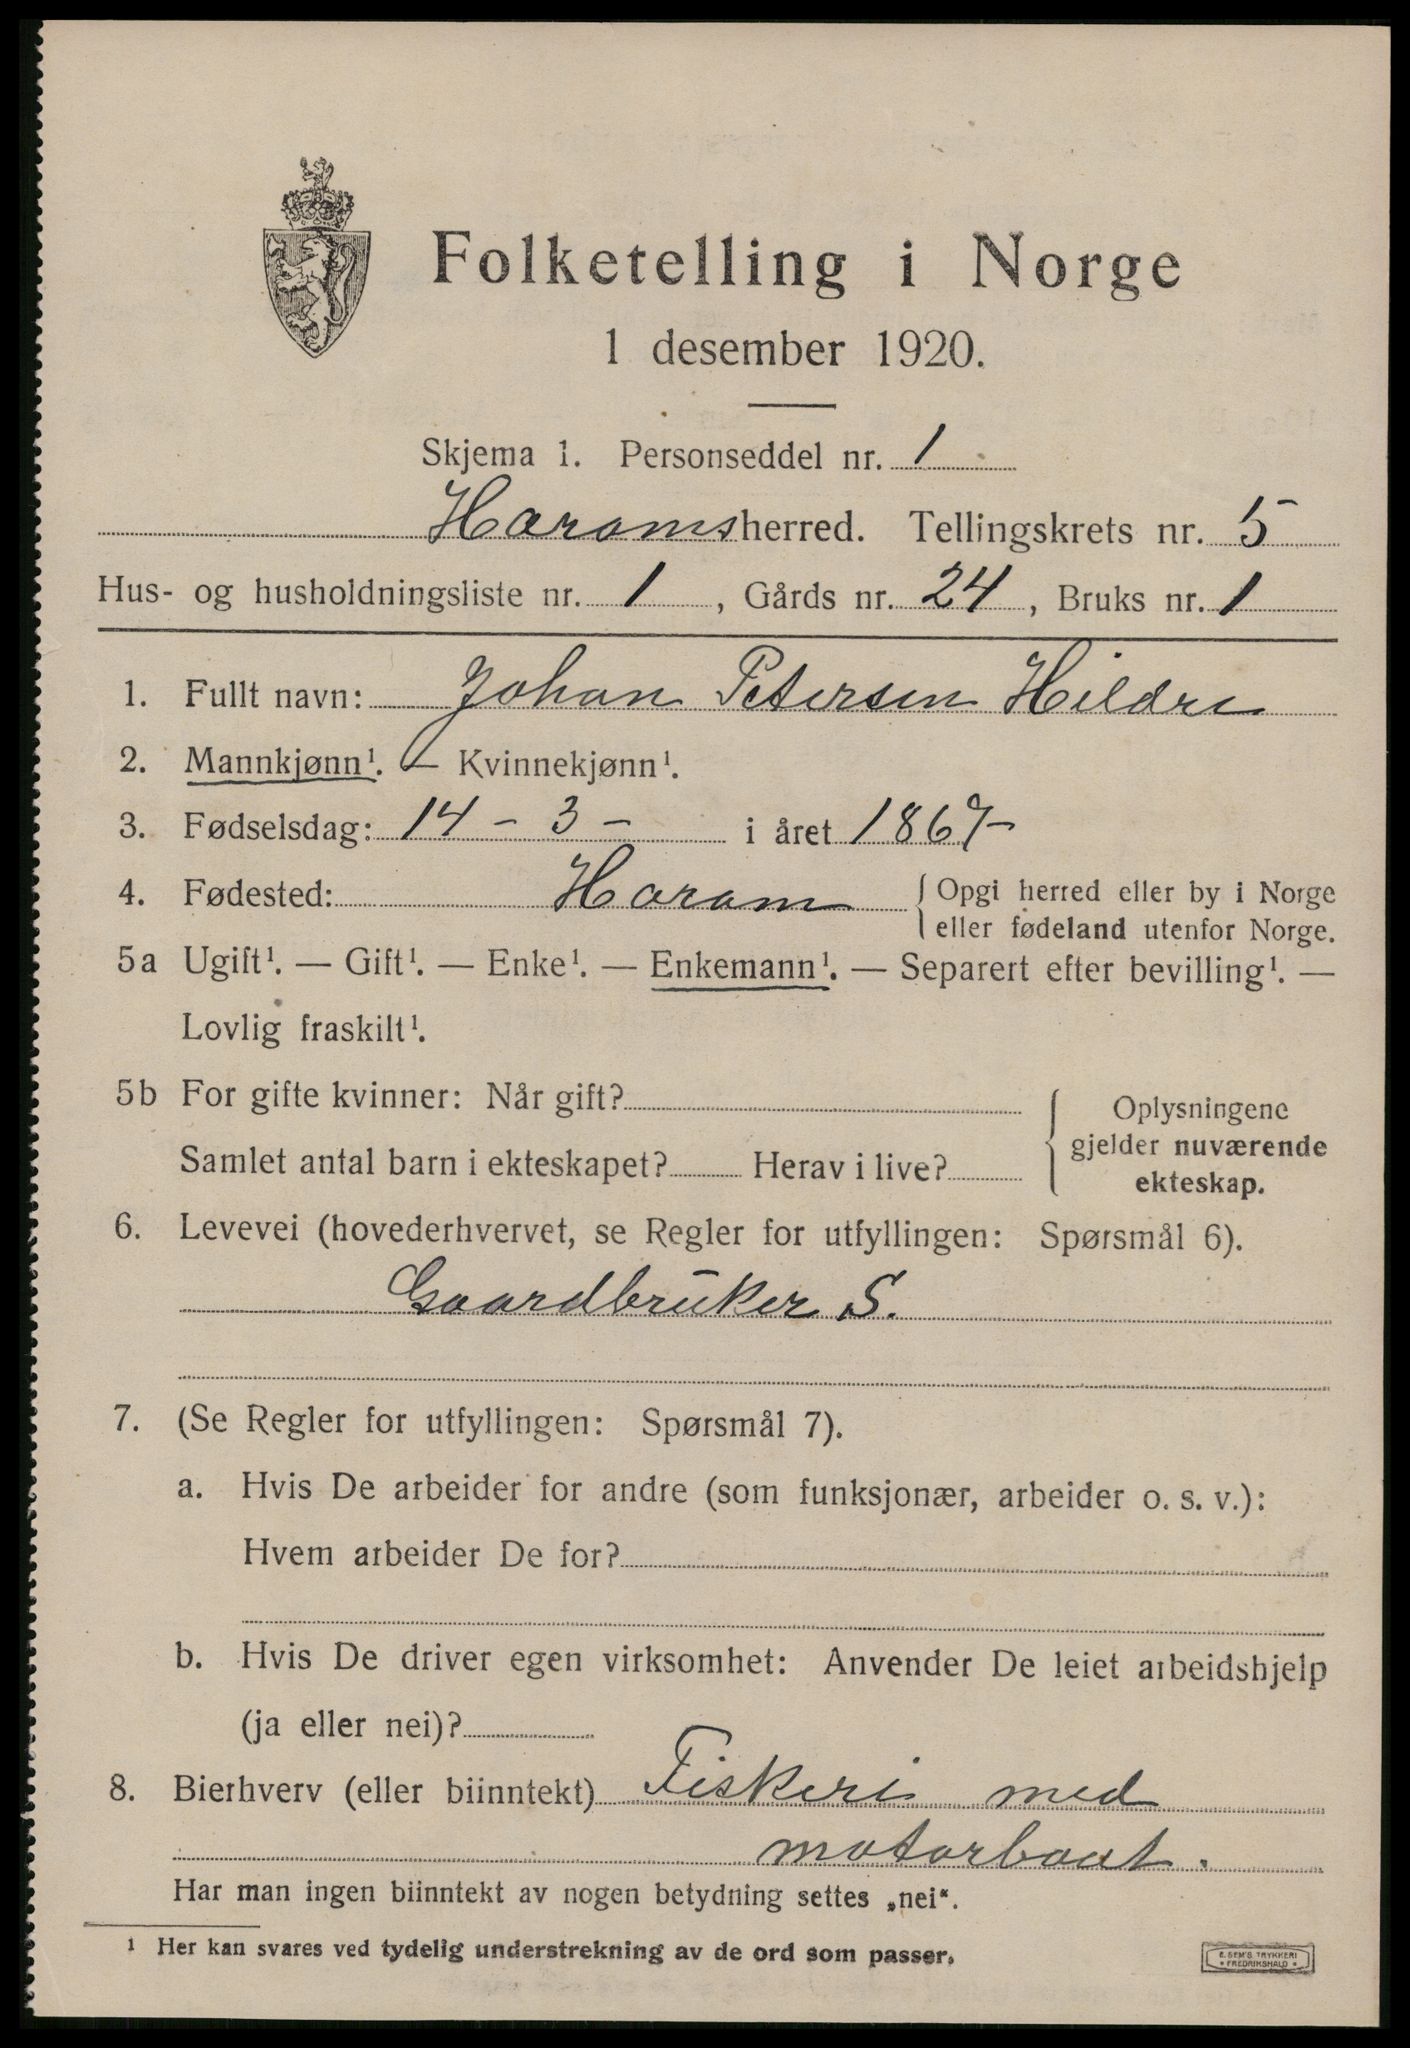 Folketelling i Norge
1 desember 1920.
Skjema 1. Personseddel nr. 1
Haramsherred. Tellingskrets nr. 5
Hus- og husholdningsliste nr. 1, Gårds nr. 24, Bruks nr. 1
1. Fullt navn: Johan Petersen Hildre
2. Mannkjønn¹. — Kvinnekjønn¹.
3. Fødselsdag: 14 - 3 - i året 1867-
4. Fødested: Haram { Opgi herred eller by i Norge
eller fødeland utenfor Norge.
5a Ugift¹. — Gift¹. — Enke¹. — Enkemann¹. — Separert efter bevilling¹. —
Lovlig fraskilt¹.
5b For gifte kvinner: Når gift?
Samlet antal barn i ekteskapet? Herav i live?
{ Oplysningene
gjelder nuværende
ekteskap.
6. Levevei (hovederhvervet, se Regler for utfyllingen: Spørsmål 6).
Gaardbruker S.
7. (Se Regler for utfyllingen: Spørsmål 7).
a. Hvis De arbeider for andre (som funksjonær, arbeider o. s. v.):
Hvem arbeider De for?
b. Hvis De driver egen virksomhet: Anvender De leiet arbeidshjelp
(ja eller nei)?
8. Bierhverv (eller biinntekt) Fiskeri med
motorbaat.
Har man ingen biinntekt av nogen betydning settes „nei“.
¹ Her kan svares ved tydelig understrekning av de ord som passer.
E. SEM'S TRYKKERI
• FREDRIKSHALD •